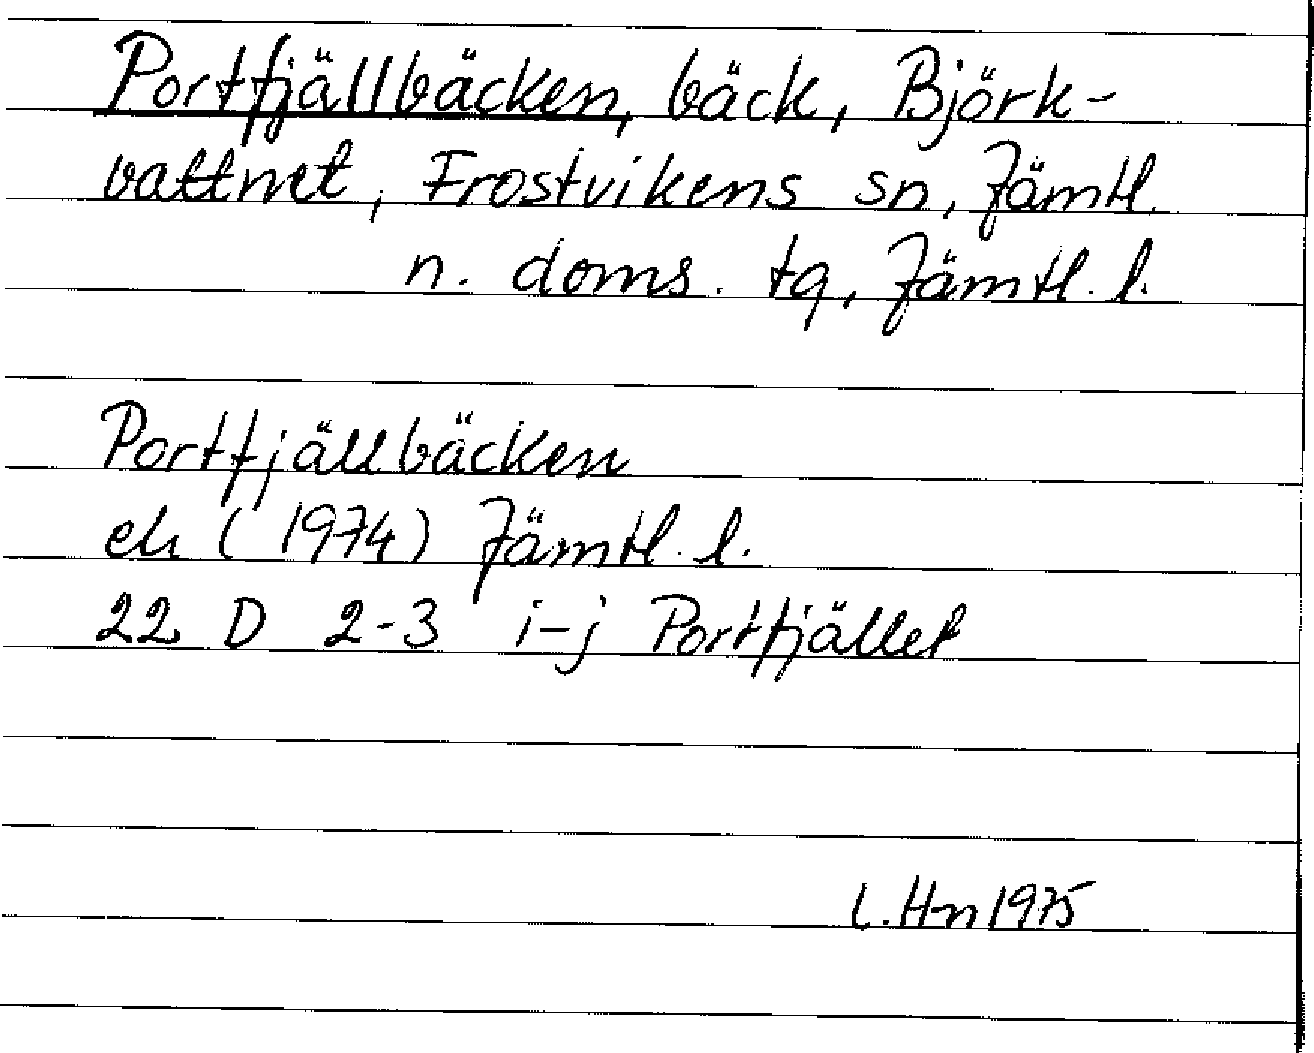 Portfjällbäcken, bäck, Björk-
vattnet, Frostvikens sn, Jämtl.
n. doms. tg, Jämtl. l.
Portfjällbäcken
ek (1974) Jämtl. l.
22 D 2-3 i-j Portfjället
L. Hn 1975